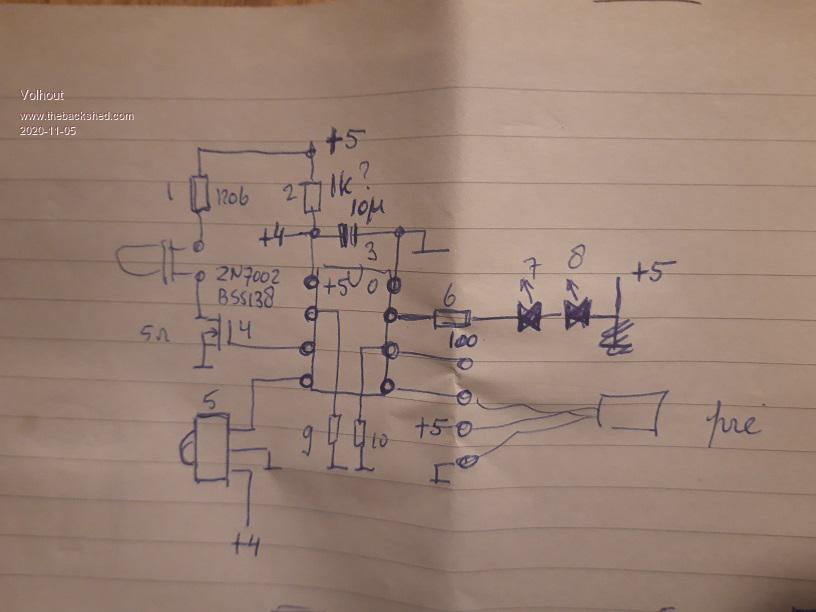 Volhout
www.thebackshed.com
2020-11-05
+5
1 120b 2 1k?
10µ
+4
3
2N7002
BSS138
+5 0
7 8 +5
6
5Ω 14
100
5
9 10 +5 pre
+4